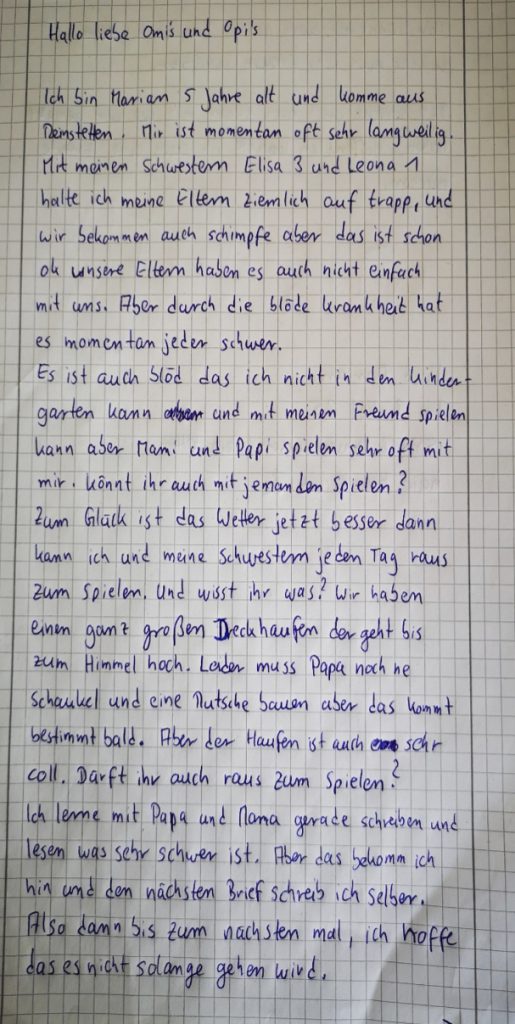 Hallo liebe Omi's und Opi's
Ich bin Marian 5 Jahre alt und komme aus
Deinstetten. Mir ist momentan oft sehr langweilig.
Mit meinen Schwestern Elisa 3 und Leona 1
halte ich meine Eltern ziemlich auf trapp, und
wir bekommen auch schimpfe aber das ist schon
ok unsere Eltern haben es auch nicht einfach
mit uns. Aber durch die blöde krankheit hat
es momentan jeder schwer.
Es ist auch blöd das ich nicht in den Kinder-
garten kann und mit meinen Freund spielen
kann aber Mami und Papi spielen sehr oft mit
mir. könnt ihr auch mit jemanden spielen?
Zum Glück ist das Wetter jetzt besser dann
kann ich und meine Schwestern jeden Tag raus
zum spielen. Und wisst ihr was? Wir haben
einen ganz großen Dreckhaufen der geht bis
zum Himmel hoch. Leider muss Papa noch ne
Schaukel und eine Rutsche bauen aber das kommt
bestimmt bald. Aber der Haufen ist auch sehr
coll. Dürft ihr auch raus zum Spielen?
Ich lerne mit Papa und Mama gerade schreiben und
lesen was sehr schwer ist. Aber das bekomm ich
hin und den nächsten Brief schreib ich selber.
Also dann bis zum nächsten mal, ich hoffe
das es nicht solange gehen wird.